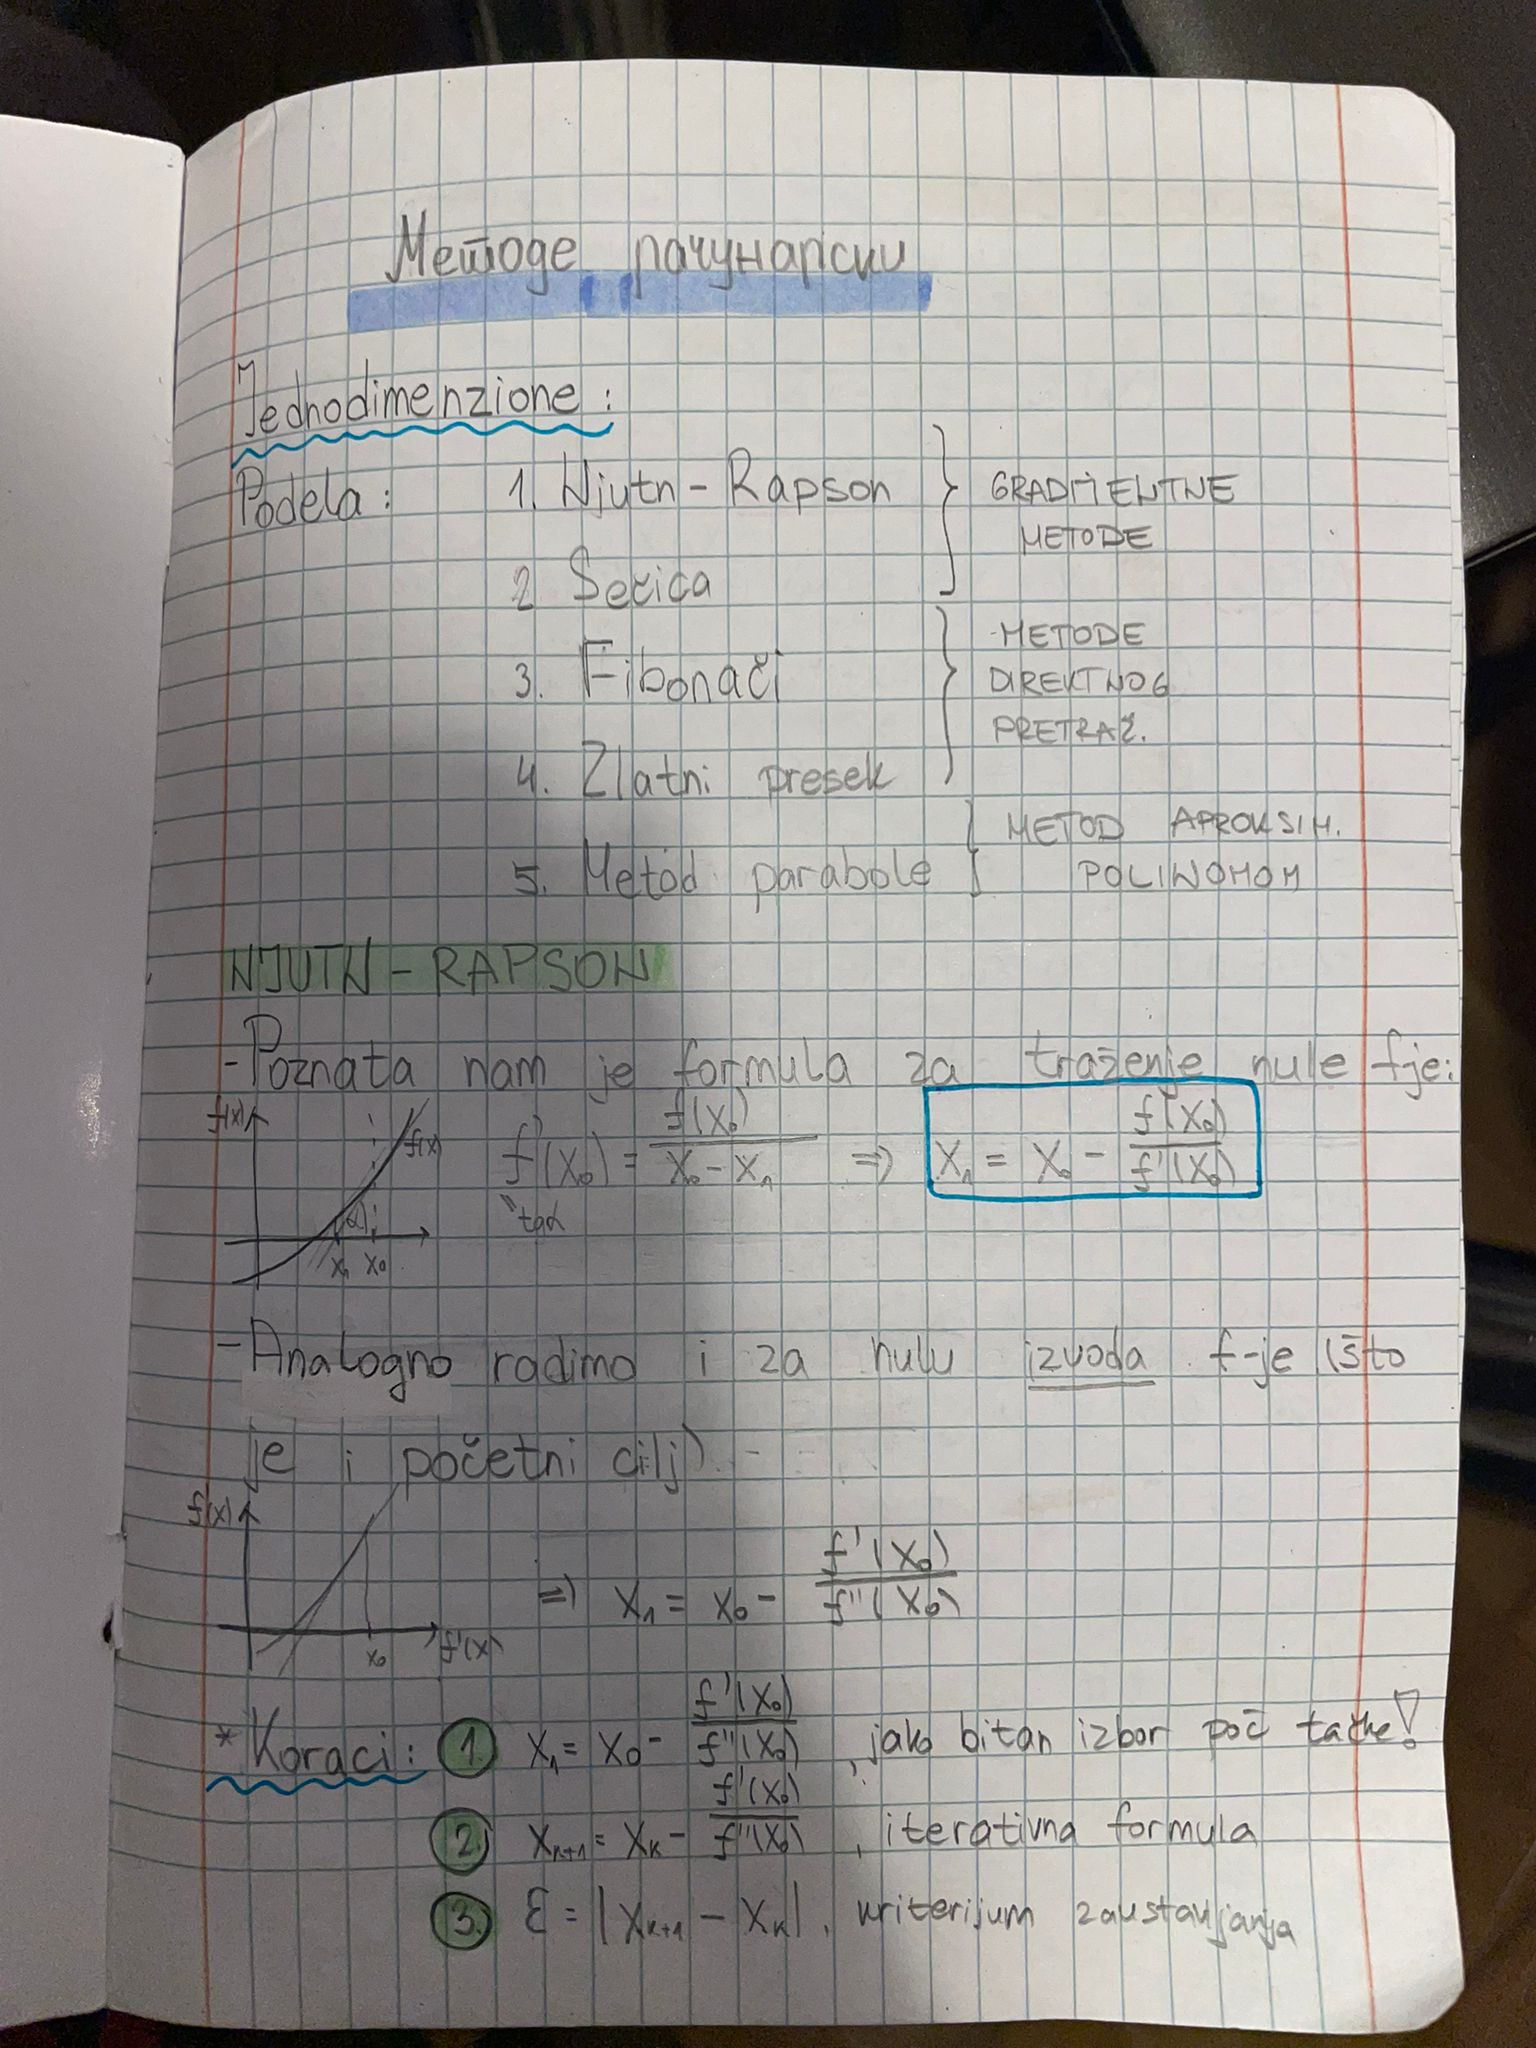 Методе рачунарски
Jednodimenzione:
Podela: 1. Njutn-Rapson } GRADIJENTNE
METODE
2 Sečica
3. Fibonači } METODE
DIREKTNOG
PRETRAŽ.
4. Zlatni presek
5. Metod parabole } METOD APROKSIM.
POLINOMOM
NJUTN-RAPSON
-Poznata nam je formula za traženje nule fje:
f(x) f(x) x₁ x₀ α
f'(x₀) = f(x₀) / (x₀ - x₁) ⇒ x₁ = x₀ - f(x₀) / f'(x₀)
"tgα
-Analogno radimo i za nulu izvoda f-je (što
je i početni cilj)
f(x) x₀ f'(x)
⇒ x₁ = x₀ - f'(x₀) / f''(x₀)
*Koraci: 1. x₁ = x₀ - f'(x₀) / f''(x₀), jako bitan izbor poč tačke!
2. xₖ₊₁ = xₖ - f'(x₀) / f''(x₀), iterativna formula
3. ε = |xₖ₊₁ - xₖ|, kriterijum zaustavljanja